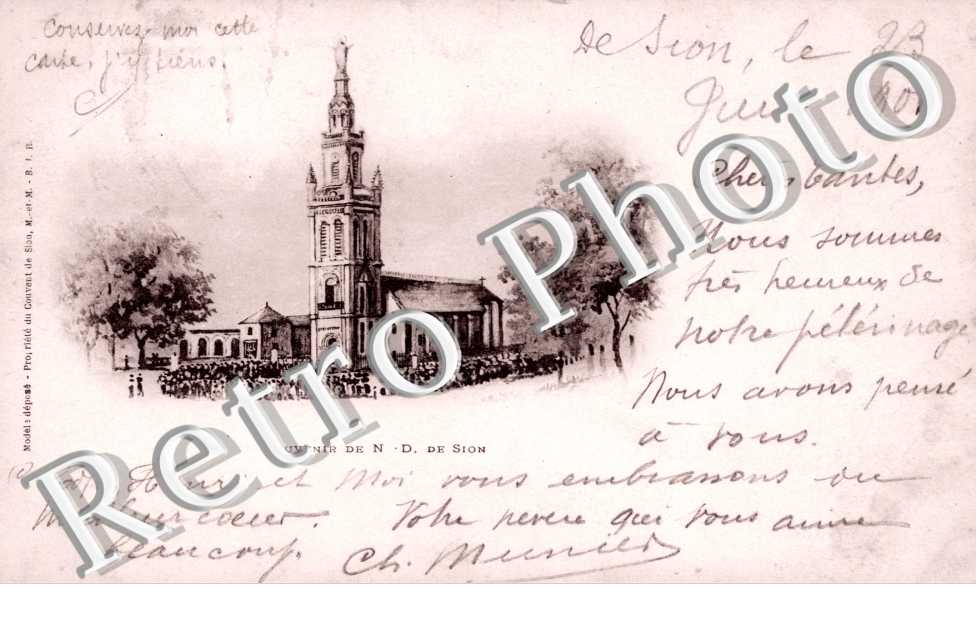 Conservez-moi cette
carte, j'y tiens.
De Sion, le 23
Chères tantes,
Nous sommes
très heureux de
notre pélérinage
Nous avons pensé
à vous.
et Moi vous embrassons du
Meilleur cœur. Votre neveu qui vous aime
beaucoup. Ch. Munier
SOUVENIR DE N.-D. DE SION
Modèle déposé - Propriété du Couvent de Sion, M.-et-M. - B. J. R.
Retro Photo